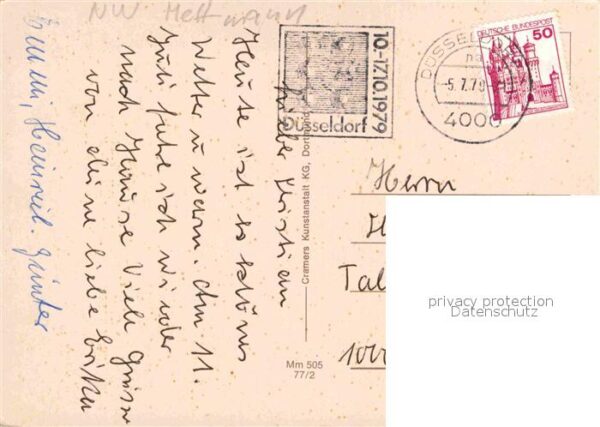 NW Mettmann
Lieber Kristian
Heute ist so schönes
Wetter u warm. Am 11.
Juli fahre ich wieder
nach Hause Viele Grüsse
von deine liebe
Emmi, Heinrich. Günter
10.-17.10.1979
Düsseldorf
DÜSSELDORF
-5.7.79
4000
DEUTSCHE BUNDESPOST
50
Cramers Kunstanstalt KG, Dortmund
Mm 505
77/2
Herrn
H
Tal
100
privacy protection
Datenschutz